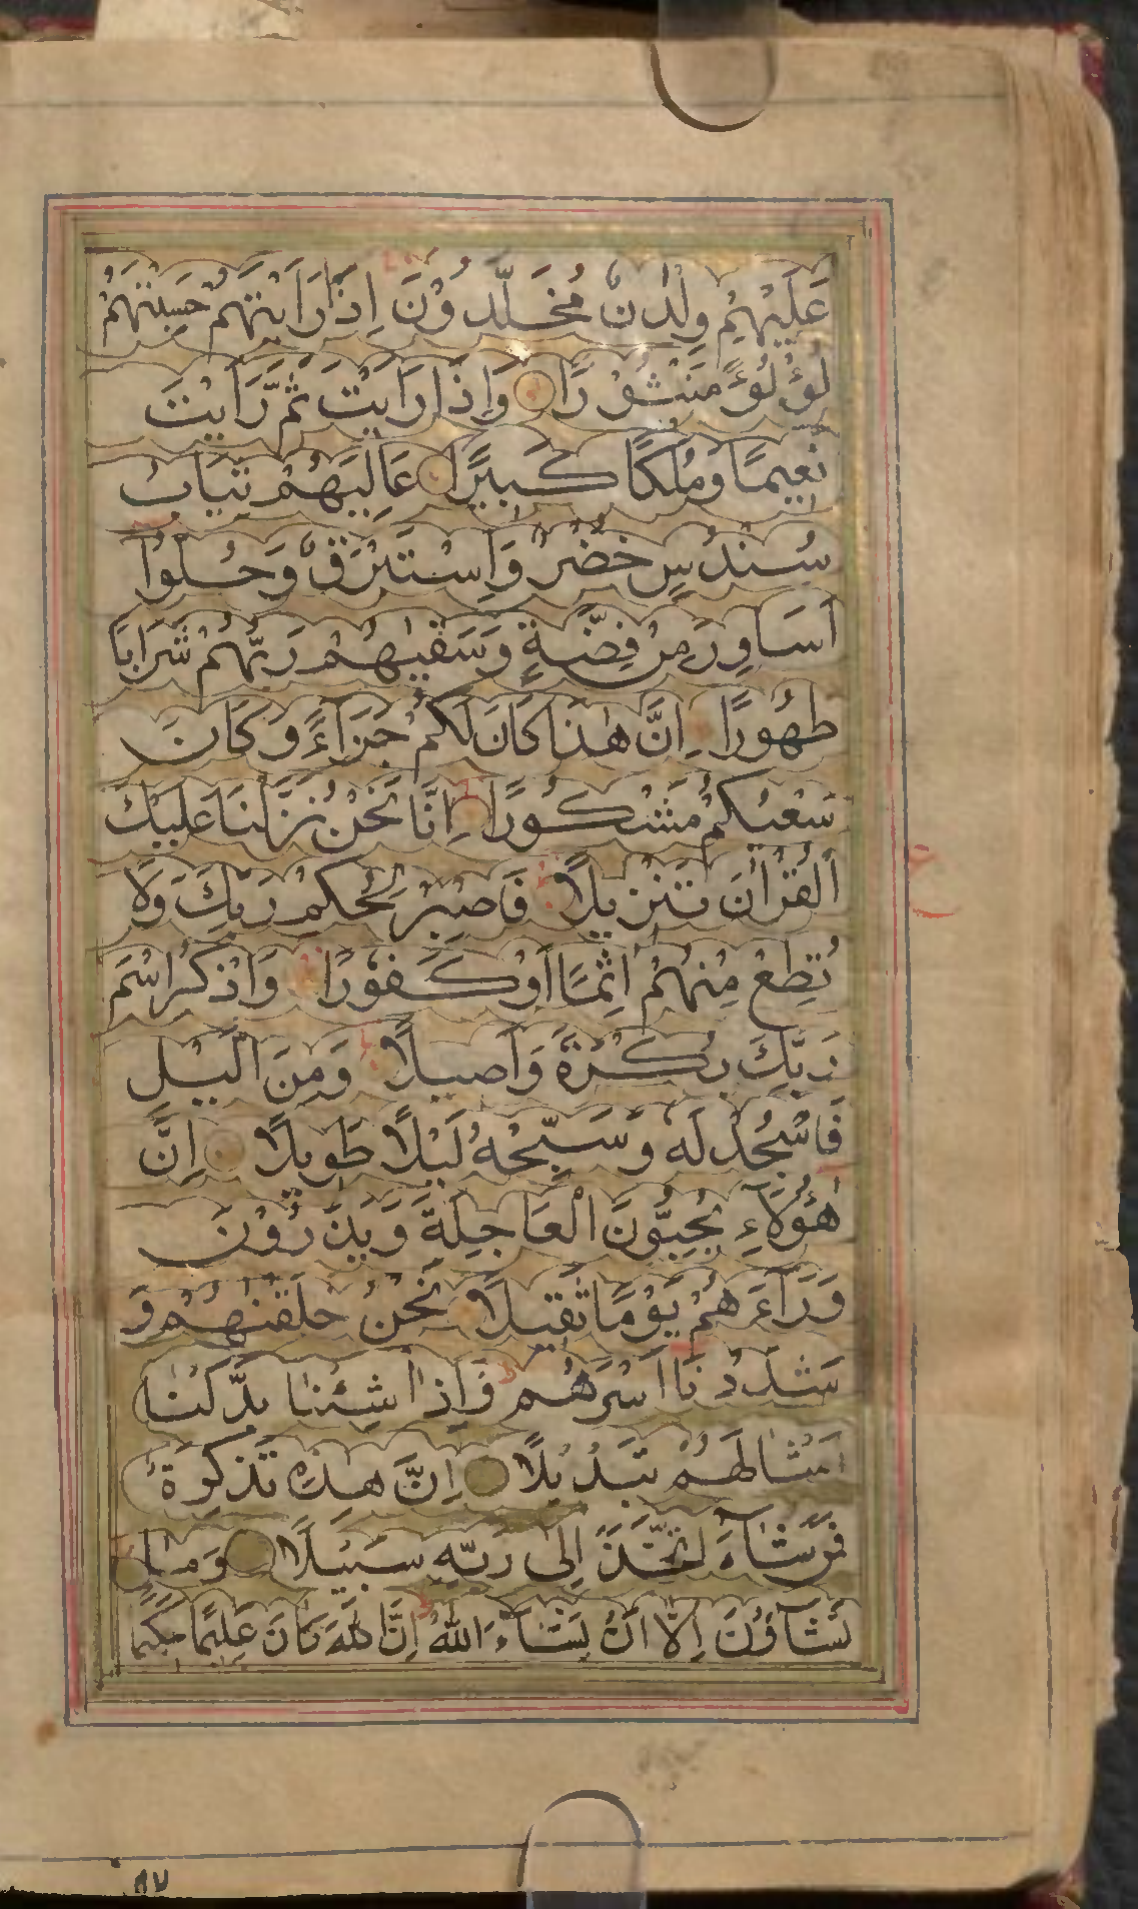 عَلَيْهِمْ وِلْدٰنٌ مُخَلَّدُوْنَ اِذَا رَاَيْتَهُمْ حَسِبْتَهُمْ
لُؤْلُؤًا مَنْثُوْرًا وَاِذَا رَاَيْتَ ثَمَّ رَاَيْتَ
نَعِيمًا وَمُلْكًا كَبِيرًا عَالِيَهُمْ ثِيَابُ
سُنْدُسٍ خُضْرٌ وَاِسْتَبْرَقٌ وَحُلُّوْا
اَسَاوِرَ مِنْ فِضَّةٍ وَسَقٰيهُمْ رَبُّهُمْ شَرَابًا
طَهُورًا اِنَّ هٰذَا كَانَ لَكُمْ جَزَاءً وَكَانَ
سَعْيُكُمْ مَشْكُورًا اِنَّا نَحْنُ نَزَّلْنَا عَلَيْكَ
الْقُرْاٰنَ تَنْزِيلًا فَاصْبِرْ لِحُكْمِ رَبِّكَ وَلَا
تُطِعْ مِنْهُمْ اٰثِمًا اَوْ كَفُوْرًا وَاذْكُرِ اسْمَ
رَبِّكَ بُكْرَةً وَاَصِيلًا وَمِنَ الَّيْلِ
فَاسْجُدْ لَهٗ وَسَبِّحْهُ لَيْلًا طَوِيلًا اِنَّ
هٰؤُلَاءِ يُحِبُّوْنَ الْعَاجِلَةَ وَيَذَرُوْنَ
وَرَآءَهُمْ يَوْمًا ثَقِيلًا نَحْنُ خَلَقْنٰهُمْ وَ
شَدَدْنَا اَسْرَهُمْ وَاِذَا شِئْنَا بَدَّلْنَا
اَمْثَالَهُمْ تَبْدِيْلًا اِنَّ هٰذِهٖ تَذْكِرَةٌ
فَمَنْ شَآءَ اتَّخَذَ اِلٰى رَبِّهٖ سَبِيْلًا وَمَا
تَشَآؤُنَ اِلَّا اَنْ يَشَآءَ اللّٰهُ اِنَّ اللّٰهَ كَانَ عَلِيمًا حَكِيمًا
ع